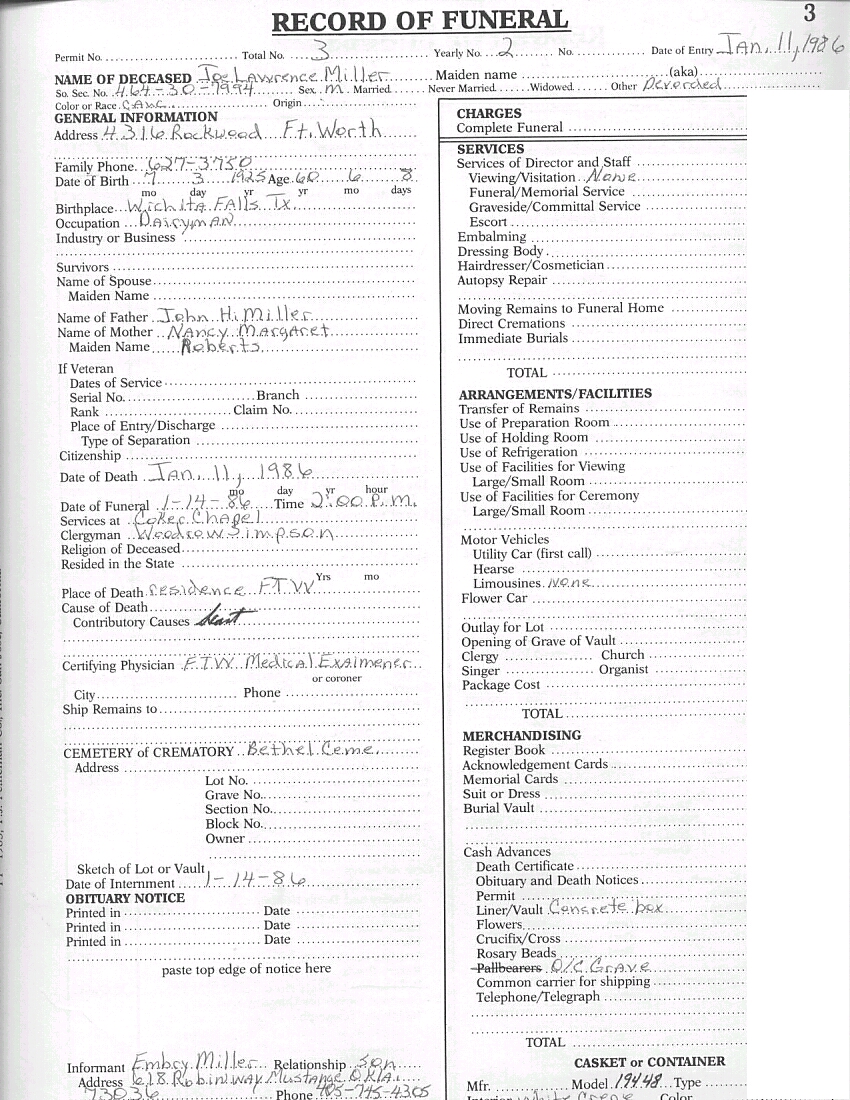 RECORD OF FUNERAL
3
Permit No. Total No. 3 Yearly No. 2 No. Date of Entry JAN. 11, 1986
NAME OF DECEASED Joe Lawrence Miller Maiden name (aka)
So. Sec. No. 464-30-7994 Sex M Married Never Married Widowed Other Devorded
Color or Race Cauc. Origin
GENERAL INFORMATION
Address 4316 Rockwood Ft. Worth
Family Phone 627-3750
Date of Birth 7 3 1925 Age 60 6 8
mo day yr yr mo days
Birthplace Wichita Falls Tx.
Occupation Dairyman
Industry or Business
Survivors
Name of Spouse
Maiden Name
Name of Father John H. Miller
Name of Mother Nancy Margaret
Maiden Name Roberts
If Veteran
Dates of Service
Serial No. Branch
Rank Claim No.
Place of Entry/Discharge
Type of Separation
Citizenship
Date of Death JAN. 11, 1986
mo day yr hour
Date of Funeral 1-14-86 Time 2:00 P.M.
Services at Coker Chapel
Clergyman Woodrow Simpson
Religion of Deceased
Resided in the State
Yrs mo
Place of Death residence FTW
Cause of Death
Contributory Causes
Certifying Physician F.T.W. Medical Exaimener
or coroner
City Phone
Ship Remains to
CEMETERY of CREMATORY Bethel Ceme.
Address
Lot No.
Grave No.
Section No.
Block No.
Owner
Sketch of Lot or Vault
Date of Internment 1-14-86
OBITUARY NOTICE
Printed in Date
Printed in Date
Printed in Date
paste top edge of notice here
Informant Embry Miller Relationship son
Address 618 Robinway Mustange OKla.
73036 Phone 405-745-4305
CHARGES
Complete Funeral
SERVICES
Services of Director and Staff
Viewing/Visitation None
Funeral/Memorial Service
Graveside/Committal Service
Escort
Embalming
Dressing Body
Hairdresser/Cosmetician
Autopsy Repair
Moving Remains to Funeral Home
Direct Cremations
Immediate Burials
TOTAL
ARRANGEMENTS/FACILITIES
Transfer of Remains
Use of Preparation Room
Use of Holding Room
Use of Refrigeration
Use of Facilities for Viewing
Large/Small Room
Use of Facilities for Ceremony
Large/Small Room
Motor Vehicles
Utility Car (first call)
Hearse
Limousines None
Flower Car
Outlay for Lot
Opening of Grave of Vault
Clergy Church
Singer Organist
Package Cost
TOTAL
MERCHANDISING
Register Book
Acknowledgement Cards
Memorial Cards
Suit or Dress
Burial Vault
Cash Advances
Death Certificate
Obituary and Death Notices
Permit
Liner/Vault Concrete box
Flowers
Crucifix/Cross
Rosary Beads
Pallbearers O/C Grave
Common carrier for shipping
Telephone/Telegraph
TOTAL
CASKET or CONTAINER
Mfr. Model 19448 Type
Interior White Crepe Color